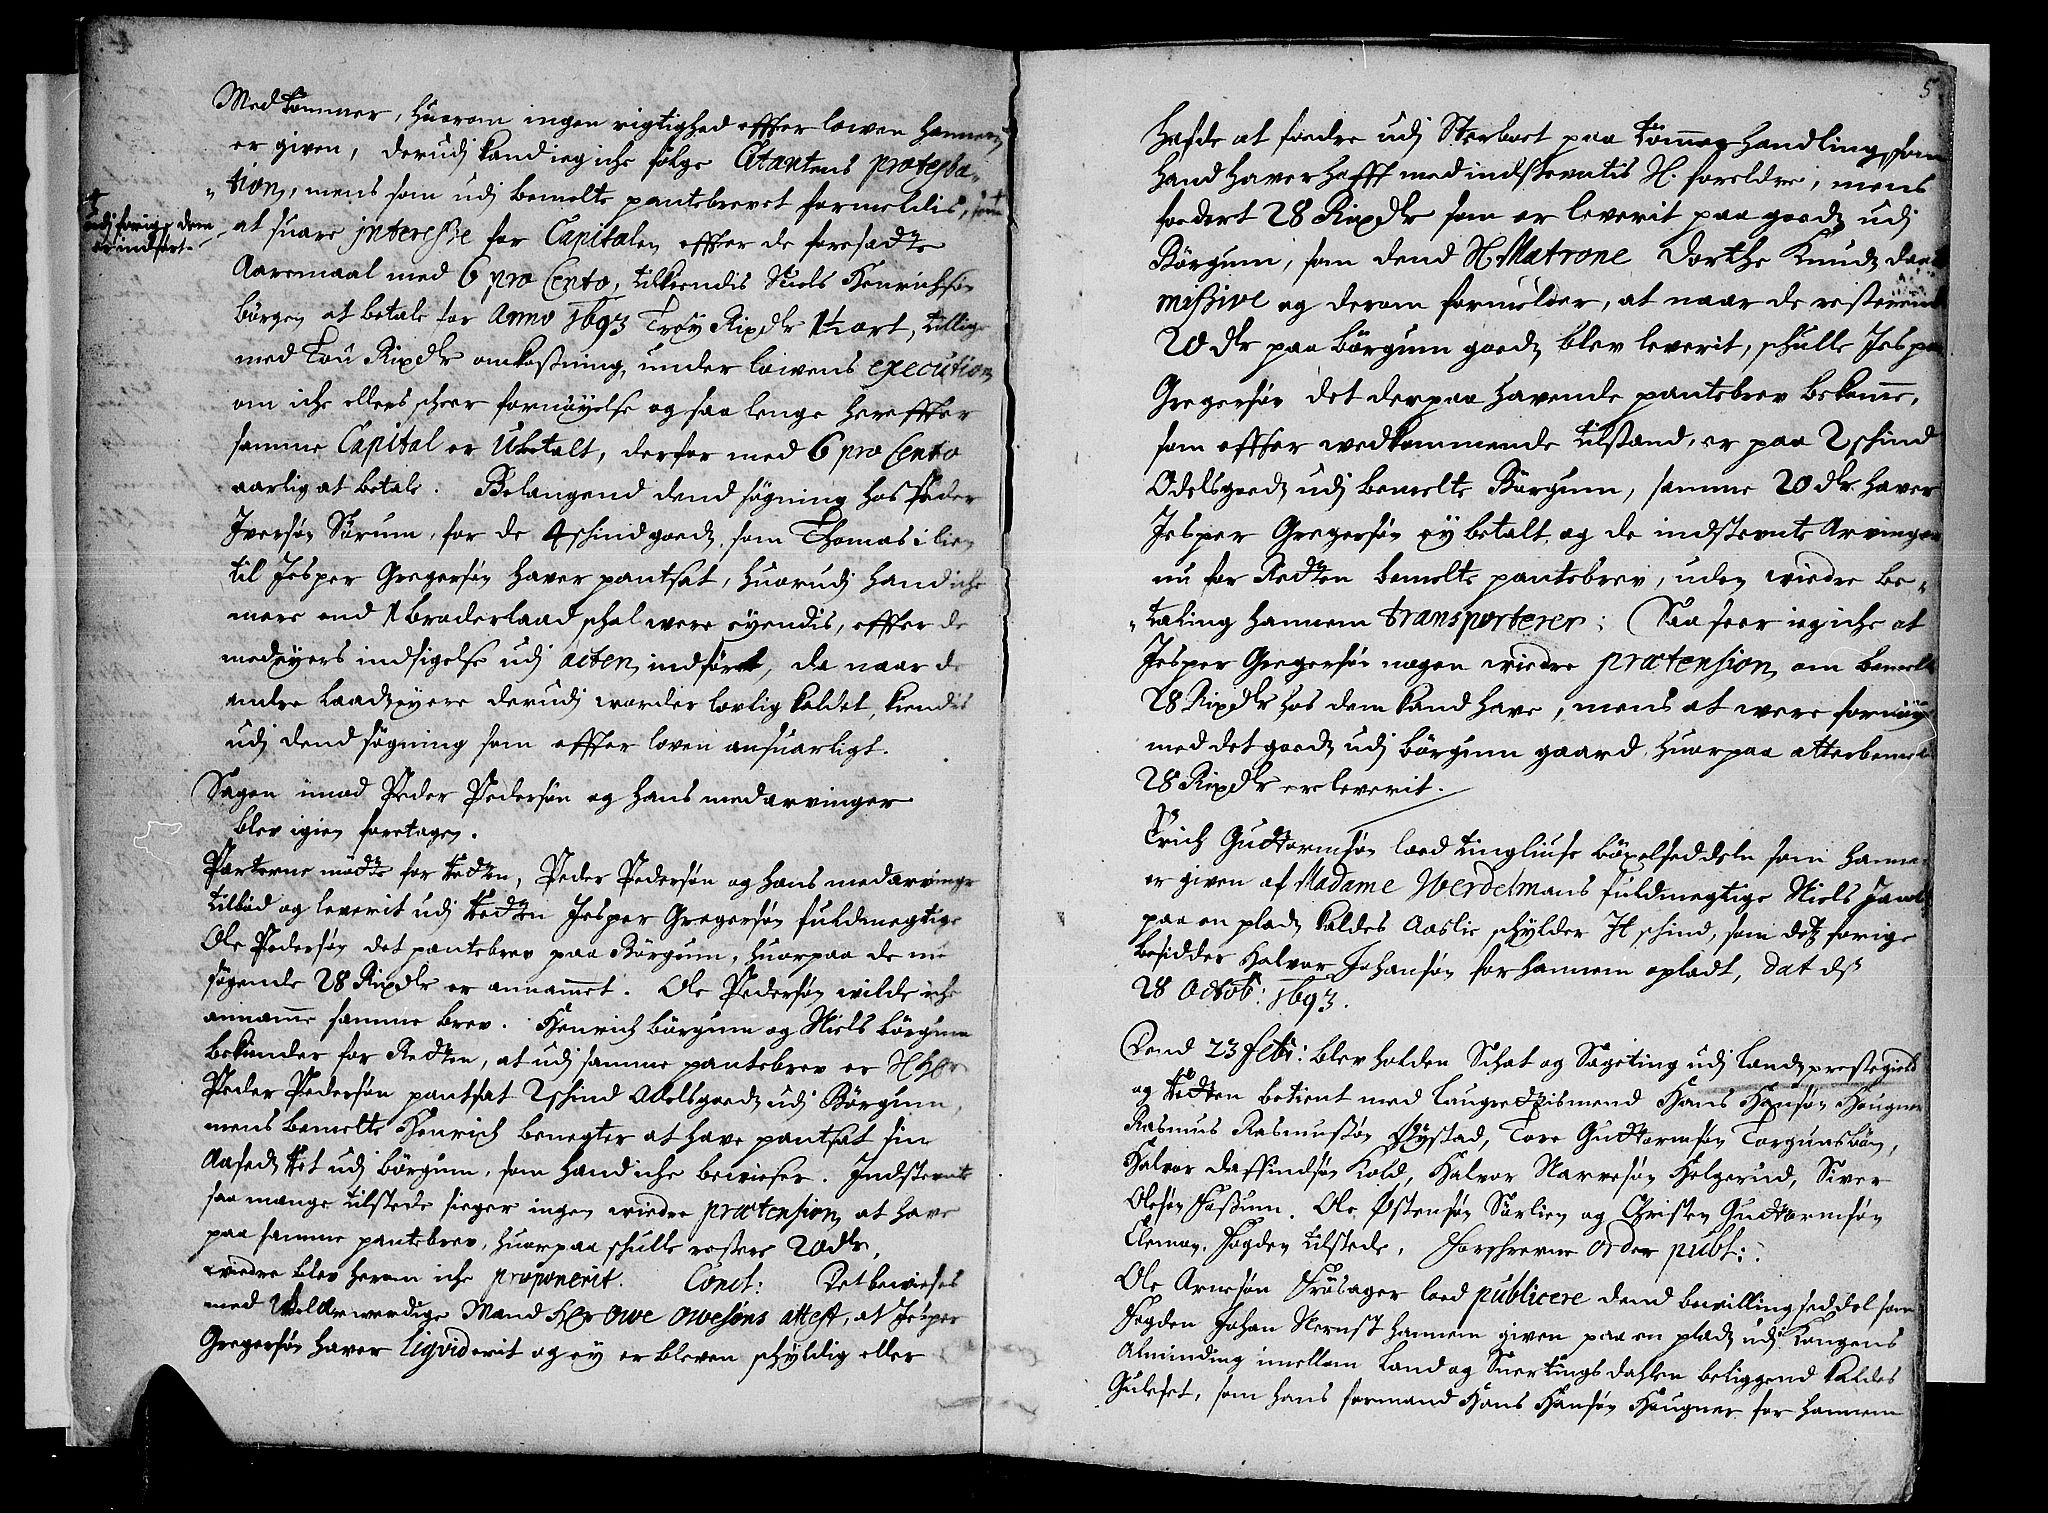 Medkommer, huorom ingen rigtighed effter lowen hannem
er given, derudj kand ieg iche følge Citantens protesta-
tion, mens som udj bemelte pantebrevet formeldis,
at suare interesse for Capitalen effter de foresadte
udj forige
Aaremaal med 6 pro Cento, tilkiendis Niels Henrichsøn
Börgen at betale for Anno 1693 Trøy Rixdlr 1½ ort, tillige
med Tou Rixdlr omkostning, under lowens execution
om iche ellers scheer fornøyelse og saa lenge hereffter
samme Capital er Ubetalt, derfor med 6 pro Cento
aarlig at betale. Belangend dend søgning hos Peder
Iversøn Sörum, for de 4 schind goedz som Thomas i lien
til Jesper Gregersøn haver pantsat, huorudj hand iche
mere end 1 broderlaad schal were eyendis, effter de
medeyers indsigelse udj acten indført, da naar de
andre laadzeyere derudj worder lovlig kaldet, kiendis
udj dend søgning som effter loven ansuarligt.
Sagen imod Peder Pedersøn og hans medarvinger
blev igien foretagen.
Parterne mødte for Retten, Peder Pedersøn og hans medarvinger
tilbød og leverit udj Retten Jesper Gregersøn fuldmegtige
Ole Pedersøn det pantebrev paa Börgum, huorpaa de nu
søgende 28 Rixdlr er annammet. Ole Pedersøn wilde iche
annamme samme brev. Henrich börgum og Niels börgum
bekiender for Retten, at udj samme pantebrev er
Peder Pedersøn pantsat 2 schind Odelsgoedz udj Börgum,
mens bemelte Henrich benegter at have pantsat sin
Aasedz Ret udj börgum, som hand iche beviser. Indstevnte
saa mange tilstede sieger ingen wiedre prætension at have
paa samme pantebrev, huorpaa schulle restere 20 dlr,
wiedre blev herom iche proponerit. Conct: Det bevises
med Velærwerdige Mand Her Owe Owesøns attest, at Jesper
Gregersøn haver liqviderit og ey er bleven schyldig eller
5
hafde at fordre udj Sterboet paa Tømmerhandling, som
hand haver hafft med indstevntis Sl. foreldre, mens
fordert 28 Rixdlr som er leverit paa goedz udj
Börgum, som dend Sl. Matrone Dorthe Knudz daater
missive og derom formelder, at naar de resterende
20 dlr paa börgum goedz blev leverit, schulle Jesper
Gregersøn det derpaa havende pantebrev bekomme,
som effter wedkommende tilstand, er paa 2 schind
Odelsgoedz udj bemelte Börgum, samme 20 dlr haver
Jesper Gregersøn ey betalt, og de indstevnte Arvinger
nu for Retten bemelte pantebrev, uden wiedre be-
taling hannem transporterer: Saa seer ieg iche at
Jesper Gregersøn nogen wiedre prætension om bemelte
28 Rixdlr hos dem kand have, mens at were fornøyet
med det goedz udj börgum gaard, huorpaa
28 Rixdlr er leverit.
Erich Guttormsøn loed tingliuse böxelseddeln som hannem
er given af Madame Werdelmans fuldmegtige Niels
paa en pladz kaldes Aaslie schylder ½ schind, som detz forige
besidder Halvor Johansøn for hannem opladt, dat ds
28 Octob: 1693.
Dend 23 febr: blev holden Schat og Sageting udj Landz prestegield
og Retten betient med laugrettismend Hans Hansøn Haugner
Rasmus Rasmussøn Tore Guttormsøn Torgunsbøn,
Halvor Daffindsøn Kold, Halvor Narvesøn Helgerud, Siver
Olesøn Fossum, Ole Østensøn Sörlien og Christen Guttormsøn
Elemon. Fogden tilstede, Forschreevne order publ:
Ole Arnesøn Frösager loed publicere dend bewillingseddel som
Fogden Johan Nernst hannem given paa en pladz udj Kongens
Alminding imellem Land og Snertingsdahlen beliggend kaldes
Guleset, som hans formand Hans Hansøn Haugner for hannem